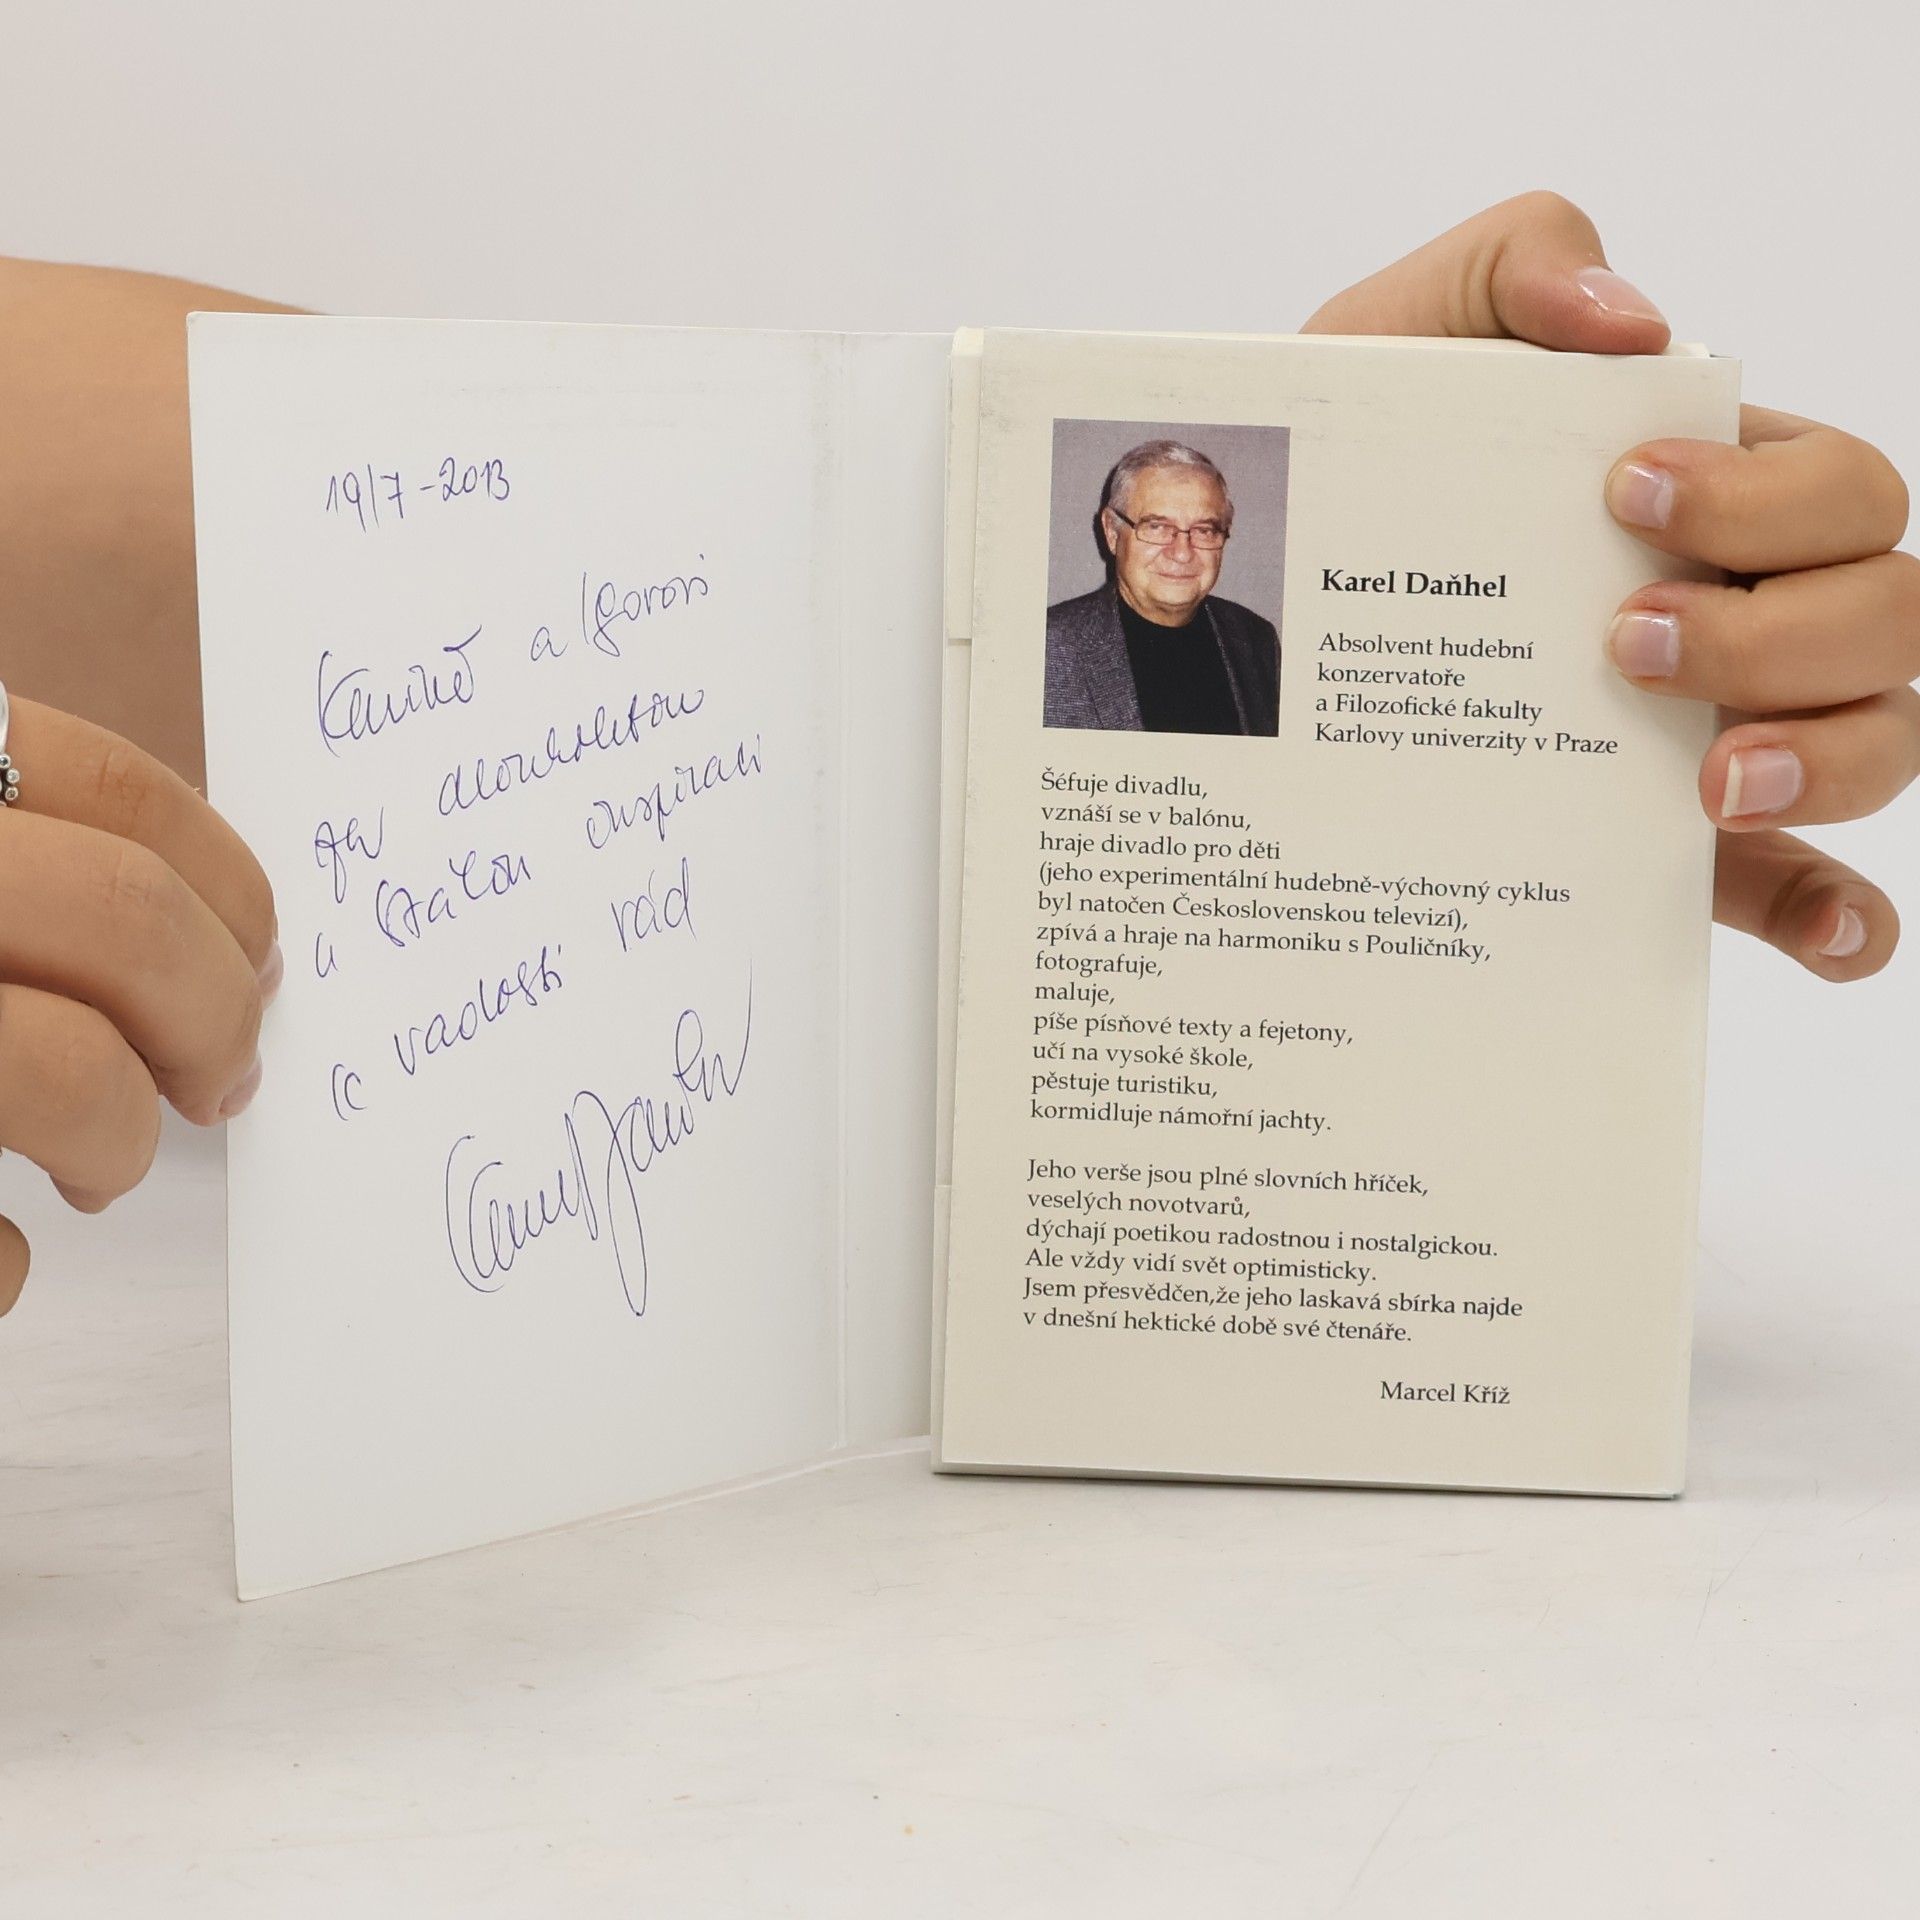 19/7-2013
a Igorovi
za dlouholetou
a stálou inspiraci
k radosti rád
Karel Daňhel
Karel Daňhel
Absolvent hudební
konzervatoře
a Filozofické fakulty
Karlovy univerzity v Praze
Šéfuje divadlu,
vznáší se v balónu,
hraje divadlo pro děti
(jeho experimentální hudebně-výchovný cyklus
byl natočen Československou televizí),
zpívá a hraje na harmoniku s Pouličníky,
fotografuje,
maluje,
píše písňové texty a fejetony,
učí na vysoké škole,
pěstuje turistiku,
kormidluje námořní jachty.
Jeho verše jsou plné slovních hříček,
veselých novotvarů,
dýchají poetikou radostnou i nostalgickou.
Ale vždy vidí svět optimisticky.
Jsem přesvědčen,že jeho laskavá sbírka najde
v dnešní hektické době své čtenáře.
Marcel Kříž